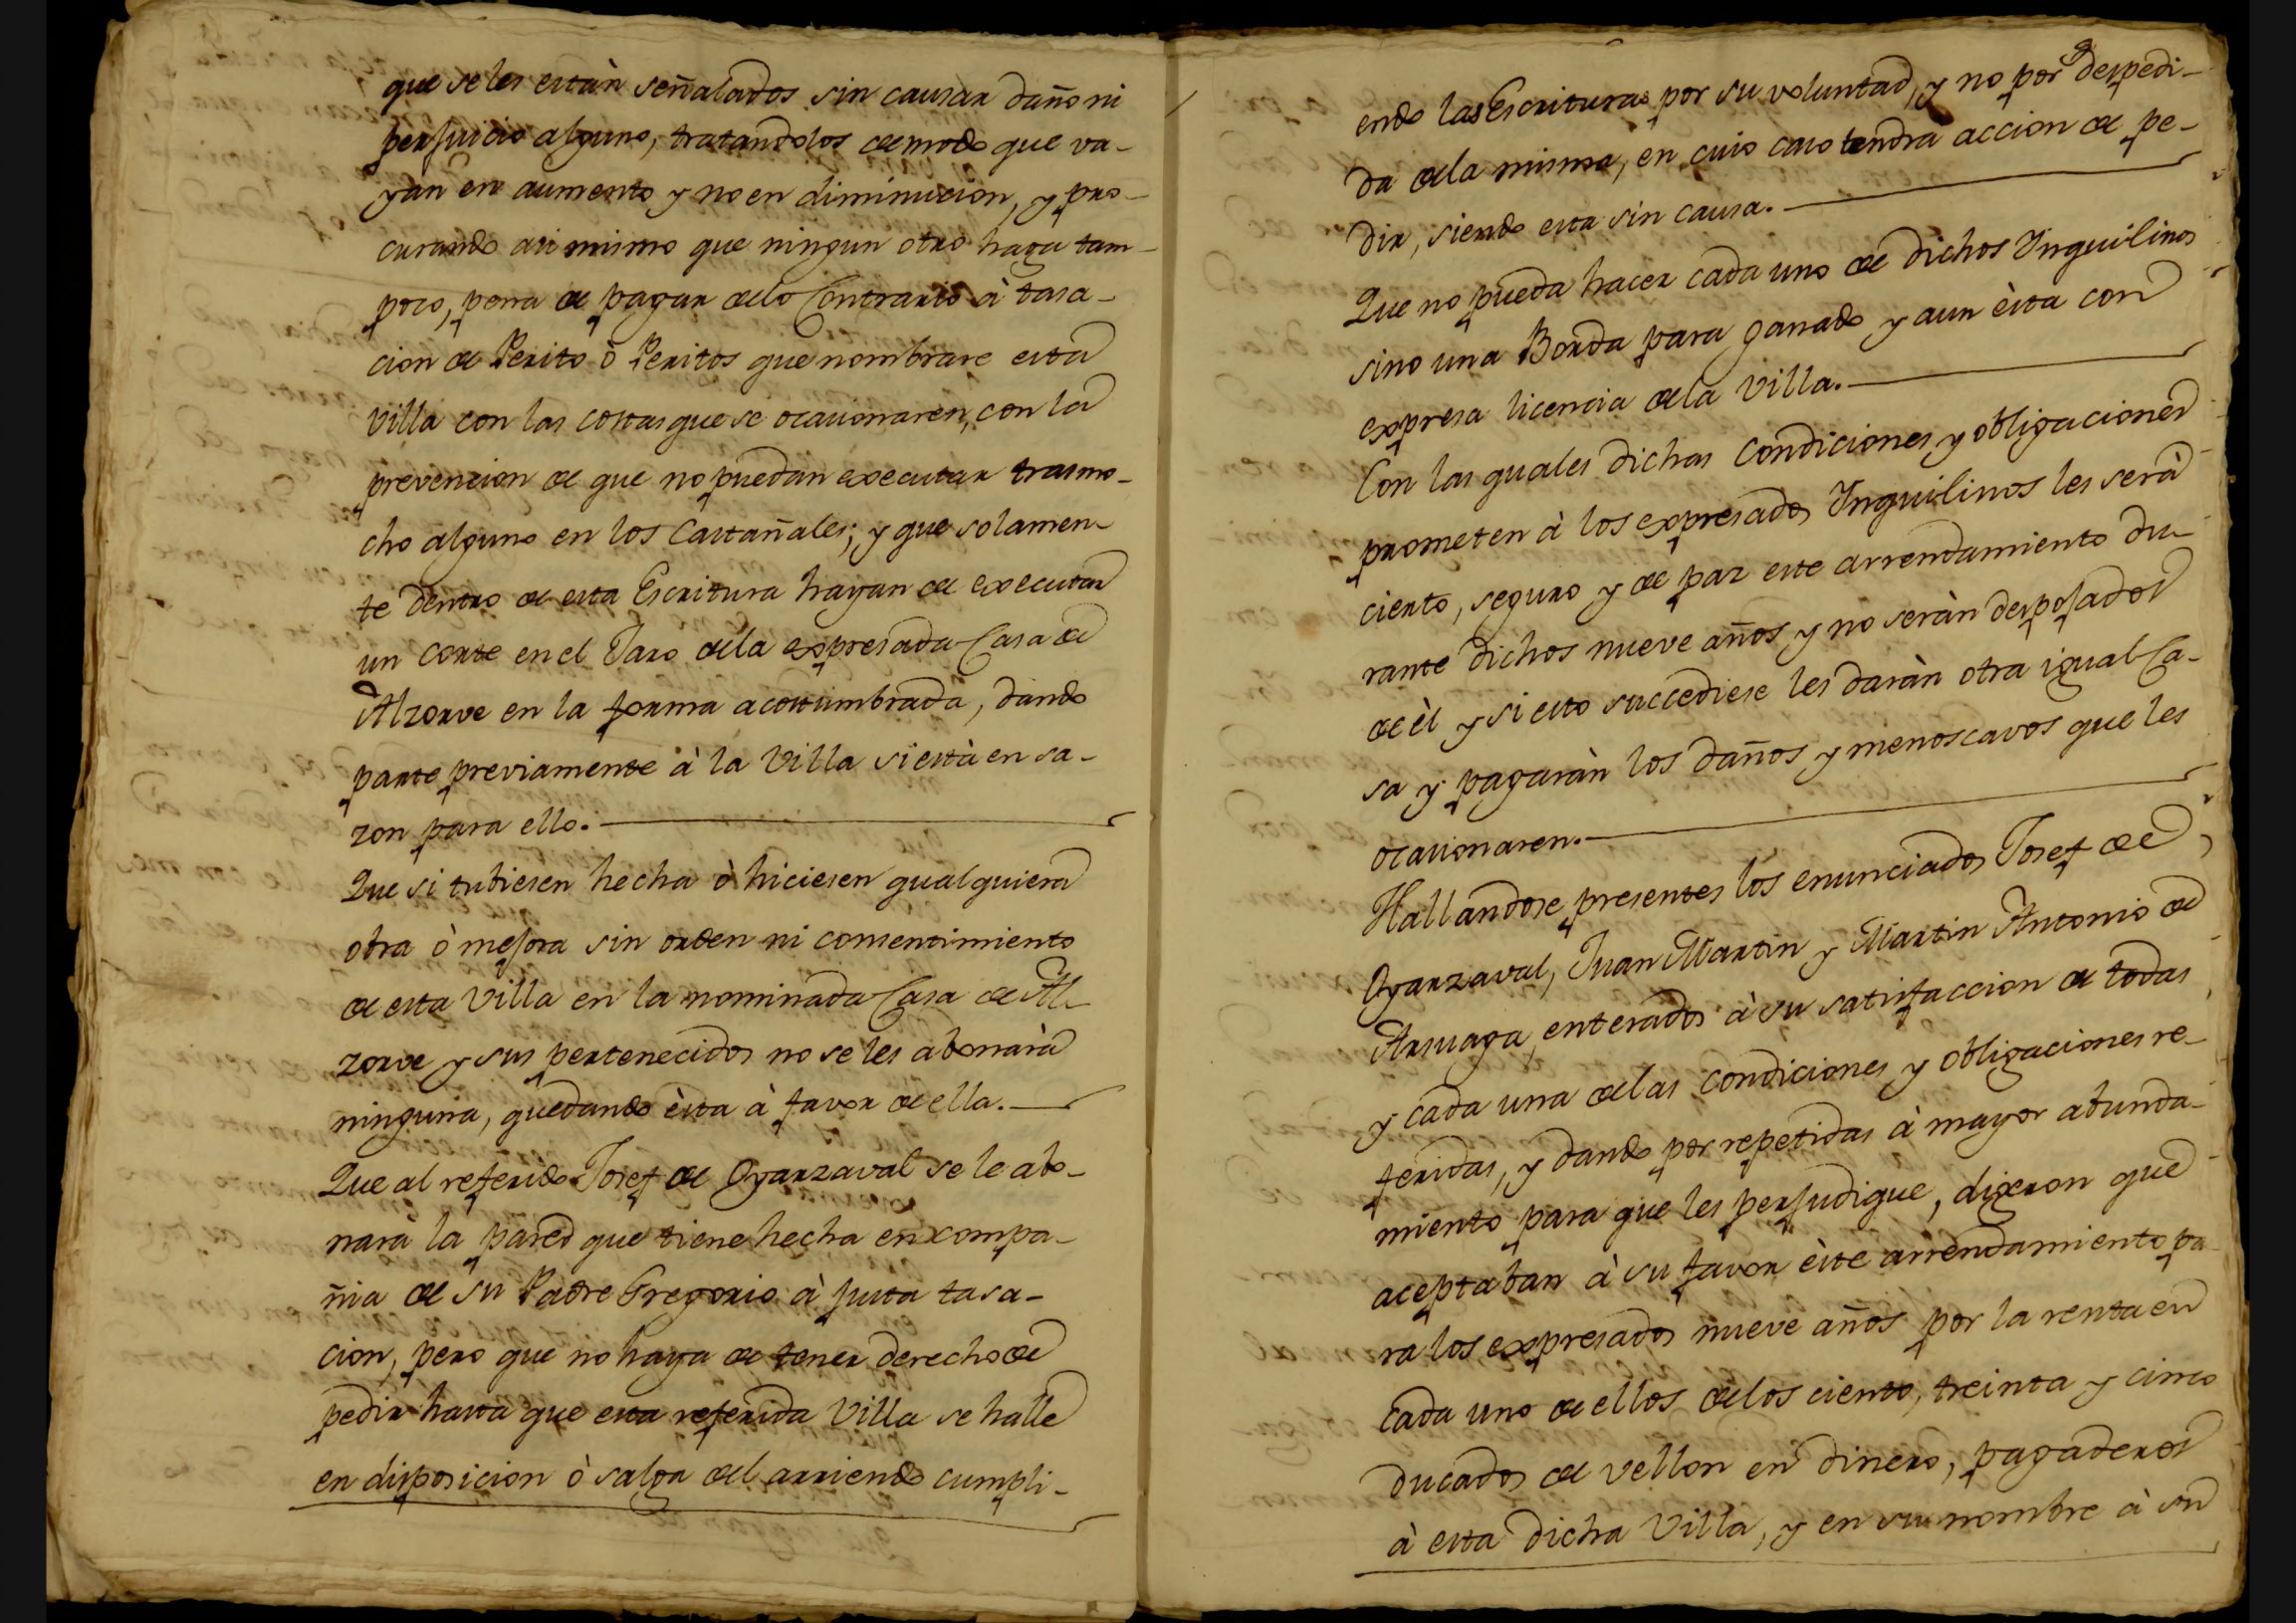 que se les están señalados sin causar daño ni
perjuicio alguno, tratandolos de modo que va-
yan en aumento y no en diminucion, y pro-
curando asi mismo que ningun otro haga tam-
poco, pena de pagar delo Contrario à tasa-
cion de Perito ò Peritos que nombrare esta
Villa con las costas que se ocasionaren, con la
prevencion de que no puedan executar trasmo-
cho alguno en los Castañales; y que solamen-
te dentro de esta Escritura hayan de executar
un corte en el Jaro dela expresada Casa de
Alzorve en la forma acostumbrada, dando
parte previamente à la Villa si està en sa-
zon para ello.
Que si tubiesen hecha ò hiciesen qualquiera
obra ò mejora sin orden ni consentimiento
de esta Villa en la nominada Casa de Al-
zorve y sus pertenecidos no se les abonarà
ninguna, quedando èsta à favor de ella.
Que al referido Josef de Oyarzaval se le abo-
narà la pared que tiene hecha en compa-
ñia de su Padre Gregorio à justa tasa-
cion, pero que no haya de tener derecho de
pedir hasta que esta referida Villa se halle
en disposicion ò salga del arriendo cumpli-
endo las Escrituras por su voluntad, y no por despedi-
da dela misma, en cuio caso tendra accion de pe-
dir, siendo esta sin causa.
Que no pueda hacer cada uno de dichos Inquilinos
sino una Borda para ganado y aun èsta con
expresa licencia dela Villa.
Con las quales dichas Condiciones y obligaciones
prometen à los expresados Inquilinos les serà
cierto, seguro y de paz este arrendamiento du-
rante dichos nueve años y no seràn despojados
de èl y si esto succediese les daràn otra igual Ca-
sa y pagaràn los daños y menoscavos que les
ocasionaren.
Hallandose presentes los enunciados Josef de
Oyarzaval, Juan Martin y Martin Antonio de
Arsuaga, enterados à su satisfaccion de todas
y cada una delas Condiciones y obligaciones re-
feridas, y dando por repetidas à mayor abunda-
miento para que les perjudique, dixeron que
aceptaban à su favor èste arrendamiento pa-
ra los expresados nueve años por la renta en
cada uno de ellos delos ciento, treinta y cinco
ducados de vellon en dinero, pagaderos
à esta dicha Villa, y en su nombre à su